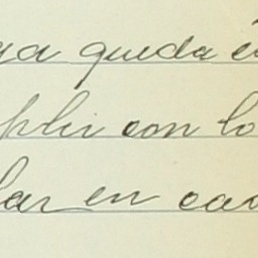 ga queda e
plir con lo
lar en cad